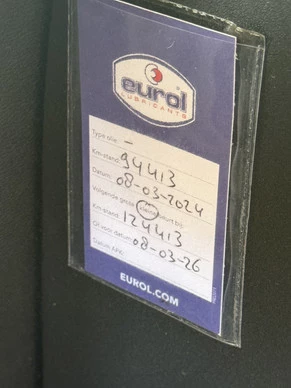 eurol
LUBRICANTS
Type olie: -
Km-stand: 94413
Datum: 08-03-2024
Volgende grote kleine beurt bij:
Km-stand: 124413
Of vóór datum: 08-03-26
Datum APK:
EUROL.COM